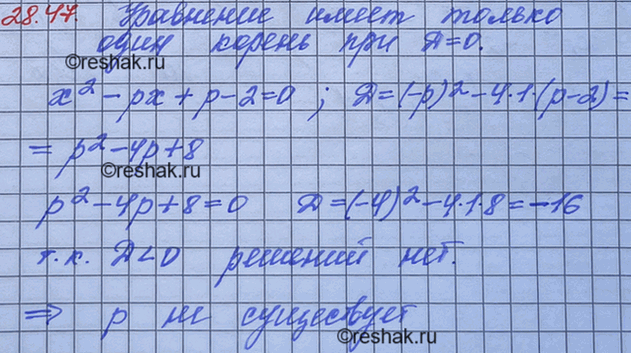 28.47. Уравнение имеет только
один корень при D=0.
©reshak.ru
x² - px + p - 2 = 0 ; D = (-p)² - 4·1·(p-2) =
= p² - 4p + 8
©reshak.ru
p² - 4p + 8 = 0 D = (-4)² - 4·1·8 = -16
т.к. D < 0 решений нет.
⇒ p не существует
©reshak.ru